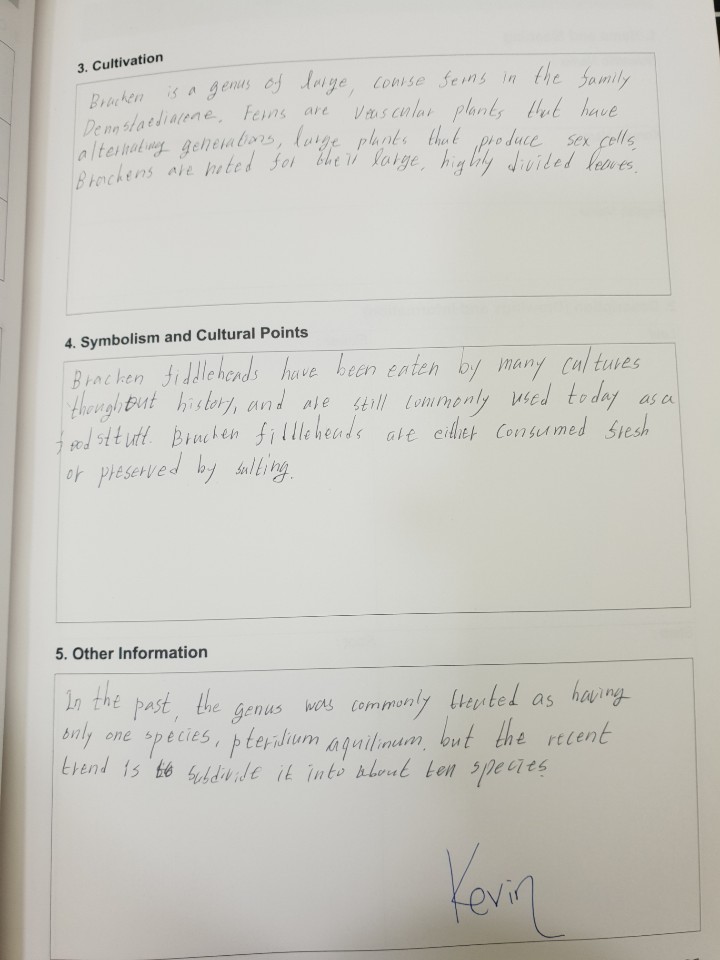 3. Cultivation
Bracken is a genus of large, course ferns in the family
Dennstaediaceae. Ferns are veascular plants that have
alternating generations, large plants that produce sex cells.
Brackens are noted for their large, highly divided leaves.
4. Symbolism and Cultural Points
Bracken fiddleheads have been eaten by many cultures
thoughout history, and are still commonly used today as a
foodsttuff. Bracken fiddleheads are either consumed fresh
or preserved by salting.
5. Other Information
In the past, the genus was commonly treated as having
only one species, pteridium aquilinum, but the recent
trend is to subdivide it into about ten species.
Kevin